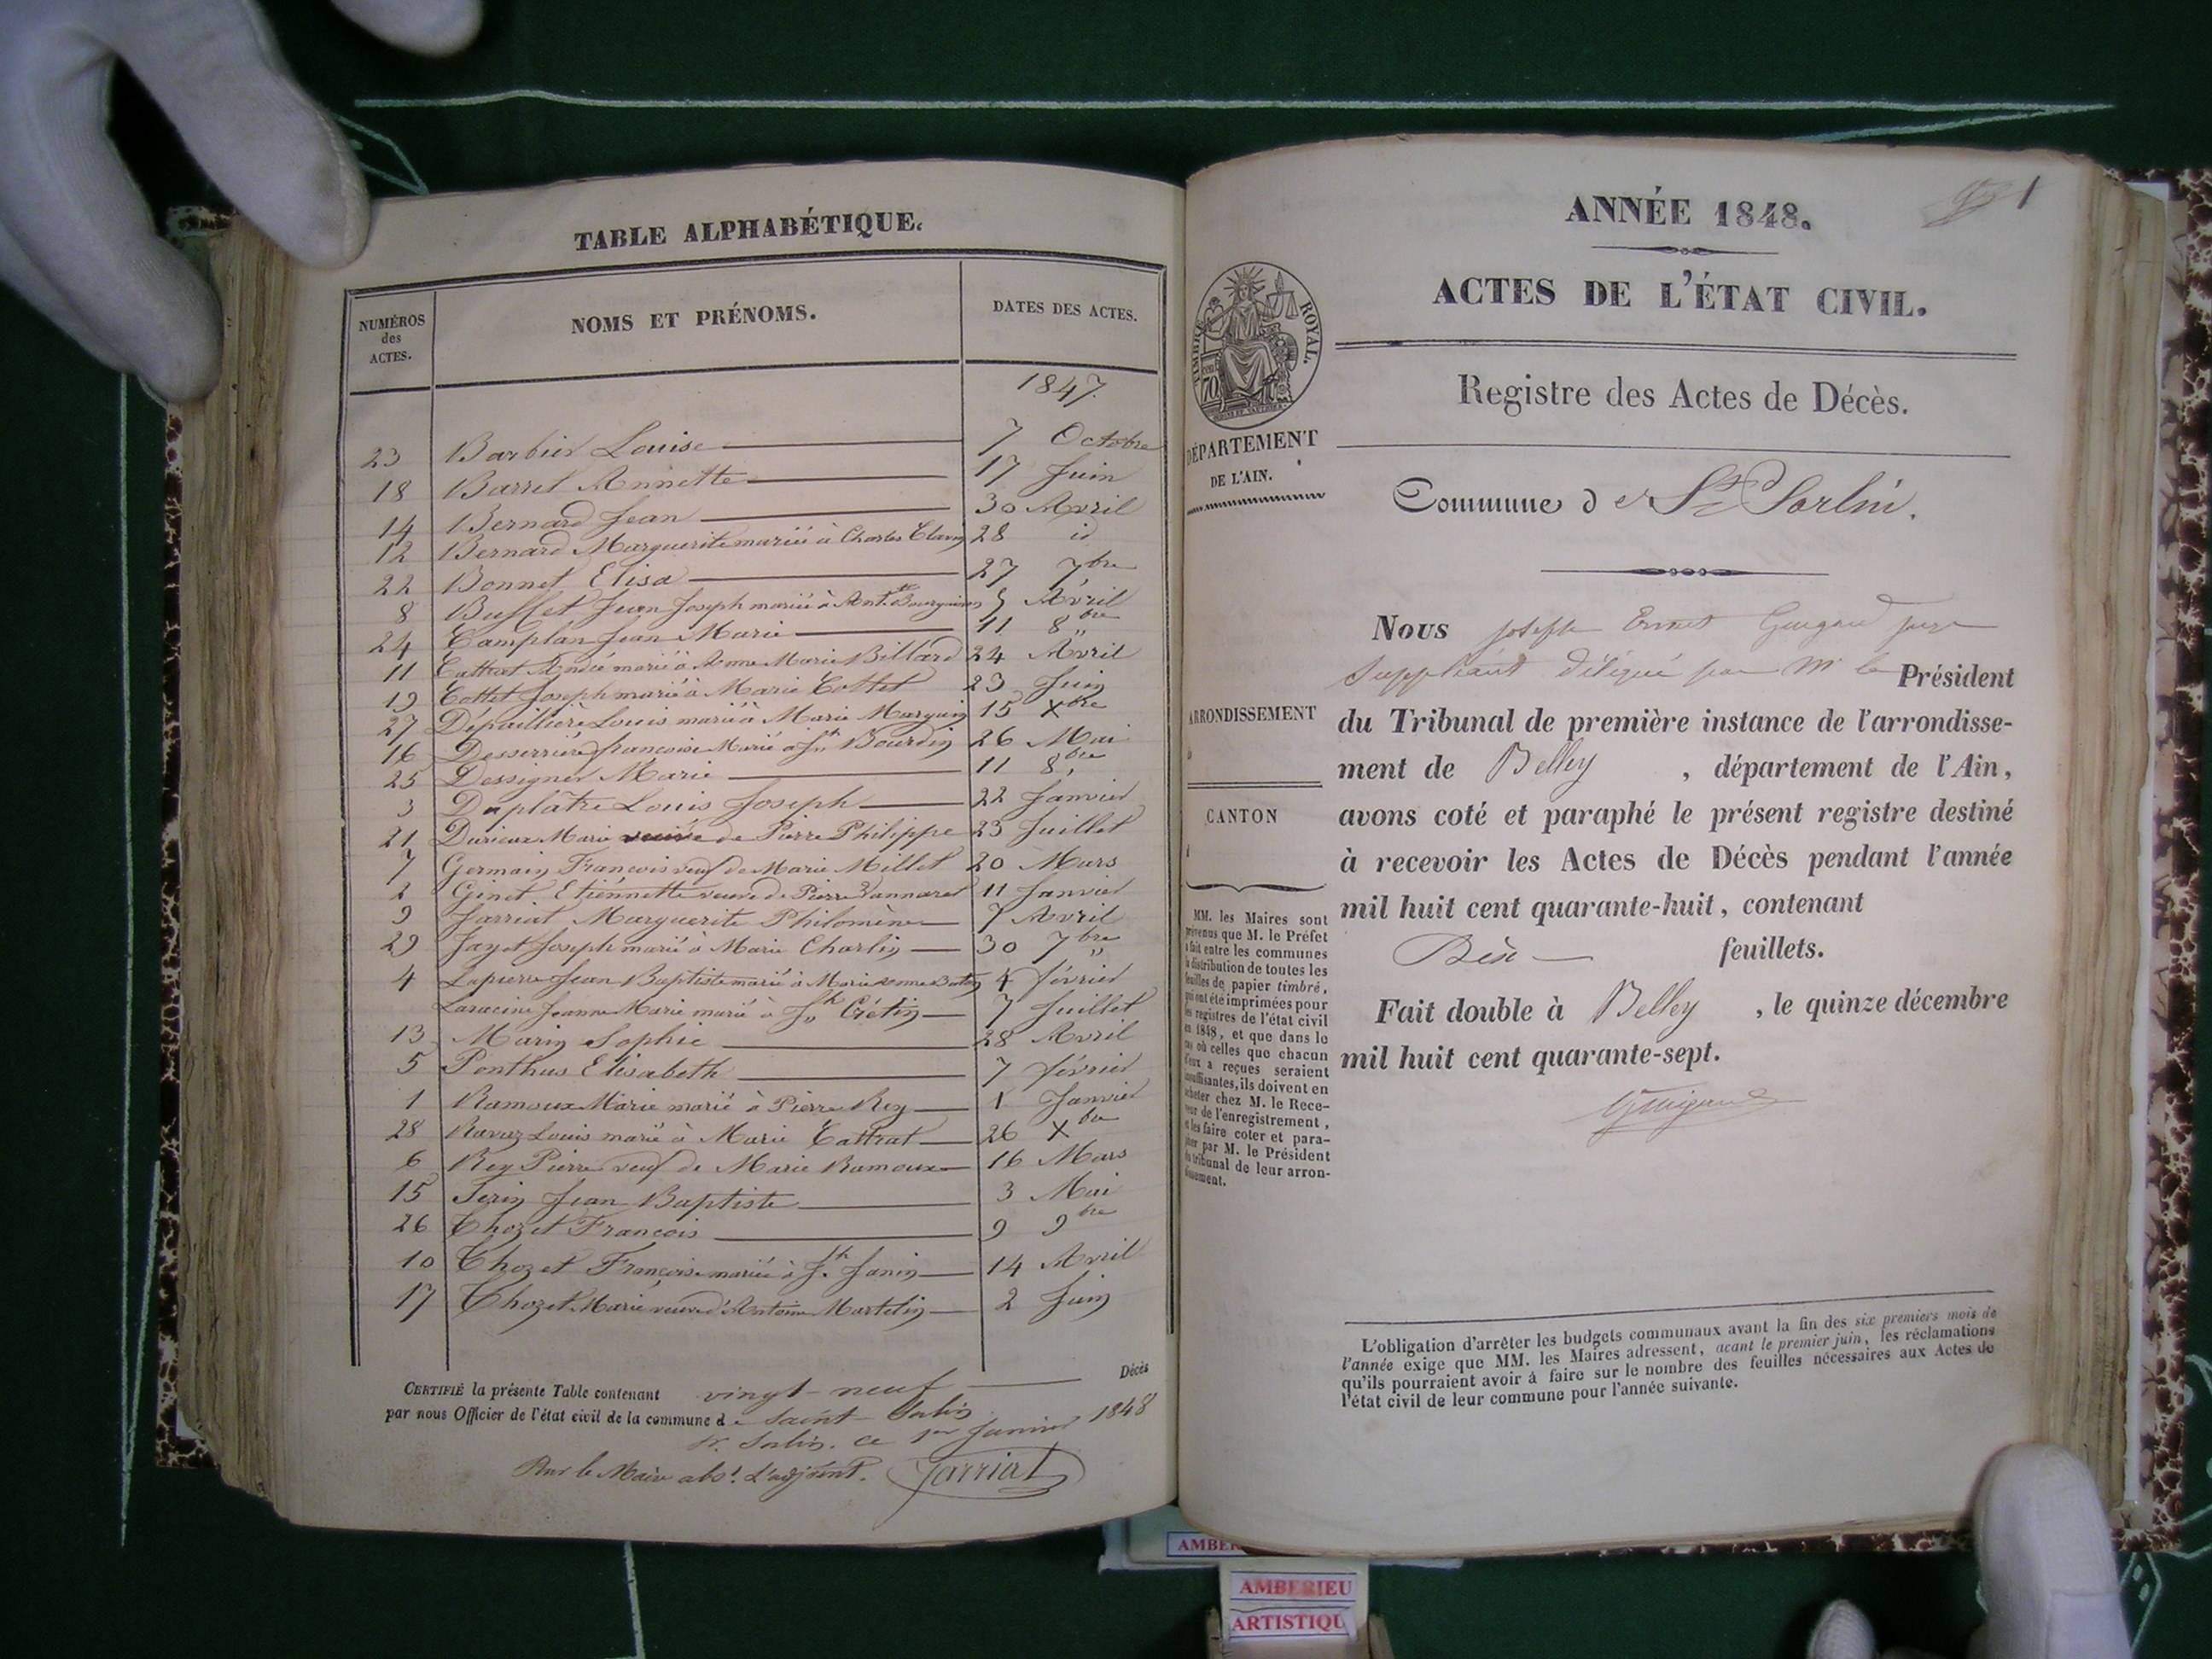 TABLE ALPHABÉTIQUE.
NUMÉROS des ACTES. NOMS ET PRÉNOMS. DATES DES ACTES.
1847.
23 Barbier Louise 7 Octobre
18 Barret Annette 17 Juin
14 Bernard Jean 30 Avril
12 Bernard Marguerite mariée à Charles 28 id
22 Bonnet Elisa 27 7bre
8 Buffet Jean Joseph marié à 5 Avril
24 Camplan Jean Marie 11 8bre
11 Cattrat André marié à Anne Marie Billard 24 Avril
19 Cottet Joseph marié à Marie Cottet 23 Juin
27 Louis marié à Marie Marguin 15 Xbre
16 françoise Marié à Jh Bourdin 26 Mai
25 Dessigner Marie 11 8bre
3 Duplâtre Louis Joseph 22 Janvier
21 Durieux Marie veuve de Pierre Philippe 23 Juillet
7 Germain François veuf de Marie Millet 20 Mars
2 Ginet Etiennette veuve de Pierre 11 Janvier
9 Jarriat Marguerite Philomène 7 Avril
29 Jayet Joseph marié à Marie Charlin 30 7bre
4 Lapierre Jean Baptiste marié à Marie Anne 4 février
Laracine Jeanne Marie marié à Jh Crétin 7 Juillet
13 Marin Sophie 28 Avril
5 Ponthus Elisabeth 7 février
1 Ramoux Marie marié à Pierre Rey 1 Janvier
28 Ravaz Louis marié à Marie Cattrat 26 Xbre
6 Rey Pierre veuf de Marie Ramoux 16 Mars
15 Jean Baptiste 3 Mai
26 Chozet François 9 9bre
10 Chozet Françoise mariée à Jh Janin 14 Avril
17 Chozet Marie veuve d'Antoine Martelin 2 Juin
CERTIFIÉ la présente Table contenant vingt-neuf Décès
par nous Officier de l'état civil de la commune de Saint-Sorlin
St Sorlin. ce 1er Janvier 1848
Pour le Maire abst. L'adjoint. Jarriat
1
ANNÉE 1848.
ACTES DE L'ÉTAT CIVIL.
TIMBRE ROYAL.
70
Registre des Actes de Décès.
DÉPARTEMENT
DE L'AIN.
Commune de St Sorlin.
Nous Joseph Ernest Guigard juge
Suppléant délégué par Mr le Président
ARRONDISSEMENT
du Tribunal de première instance de l'arrondisse-
ment de Belley, département de l'Ain,
CANTON
avons coté et paraphé le présent registre destiné
à recevoir les Actes de Décès pendant l'année
mil huit cent quarante-huit, contenant
feuillets.
Fait double à Belley, le quinze décembre
mil huit cent quarante-sept.
MM. les Maires sont
prévenus que M. le Préfet
a fait entre les communes
la distribution de toutes les
feuilles de papier timbré,
qui ont été imprimées pour
les registres de l'état civil
en 1848, et que dans le
cas où celles que chacun
d'eux a reçues seraient
insuffisantes, ils doivent en
acheter chez M. le Rece-
veur de l'enregistrement,
et les faire coter et para-
pher par M. le Président
du tribunal de leur arron-
dissement.
L'obligation d'arrêter les budgets communaux avant la fin des six premiers mois de
l'année exige que MM. les Maires adressent, avant le premier juin, les réclamations
qu'ils pourraient avoir à faire sur le nombre des feuilles nécessaires aux Actes de
l'état civil de leur commune pour l'année suivante.
AMBERIEU
ARTISTIQU